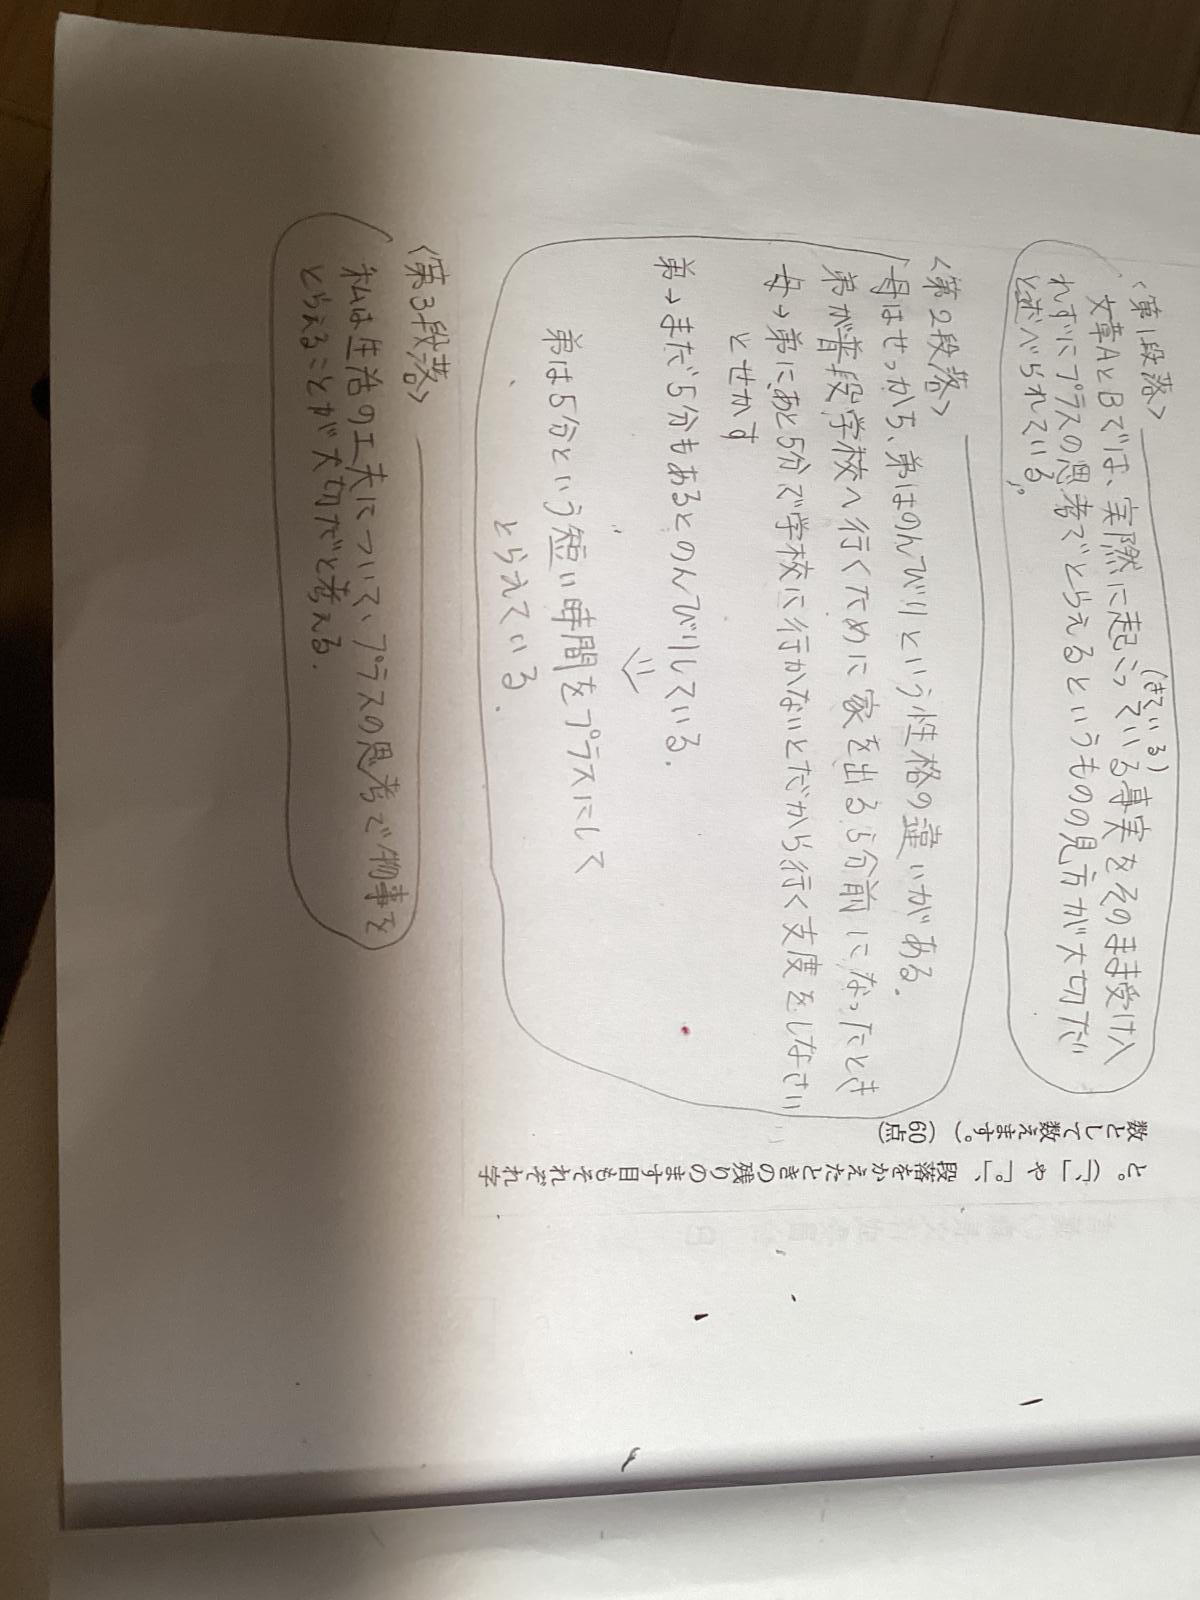 <第1段落>
文章AとBでは、実際に起こっている事実をそのまま受け入
(きている)
れずにプラスの思考でとらえるというものの見方が大切だ
と述べられている。
<第2段落>
母はせっかち、弟はのんびりという性格の違いがある。
弟が普段学校へ行くために家を出る5分前になったとき
母→弟にあと5分で学校に行かないとだから行く支度をしなさい
とせかす
弟→まだ5分もあるとのんびりしている。
弟は5分という短い時間をプラスにして
とられている。
<第3段落>
私は生活の工夫について、プラスの思考で物事を
とらえることが大切だと考える。
と。(「、」や「。」、段落をかえたときの残りのます目もそれぞれ字
数として数えます。) (60点)